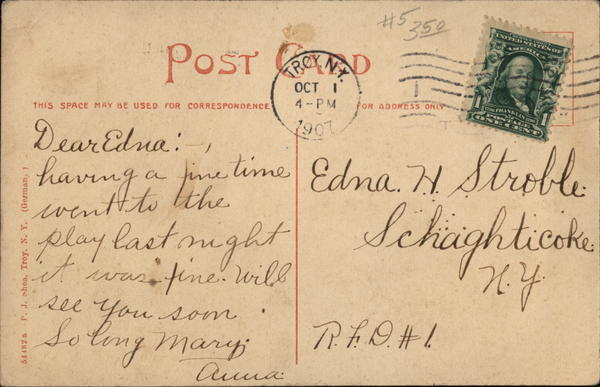 #5
350
POST CARD
TROY, N.Y.
OCT 1
4-PM
1907
UNITED STATES OF AMERICA
FRANKLIN
POSTAGE
1 ONE CENT 1
THIS SPACE MAY BE USED FOR CORRESPONDENCE
FOR ADDRESS ONLY
Dear Edna:-,
having a fine time
went to the
play last night
it was fine. Will
see you soon
So long Mary.
Anna.
Edna. H. Stroble.
Schaghticoke.
N.Y.
R.F.D. #1.
54482a P. J. Shea, Troy, N. Y. (German.)